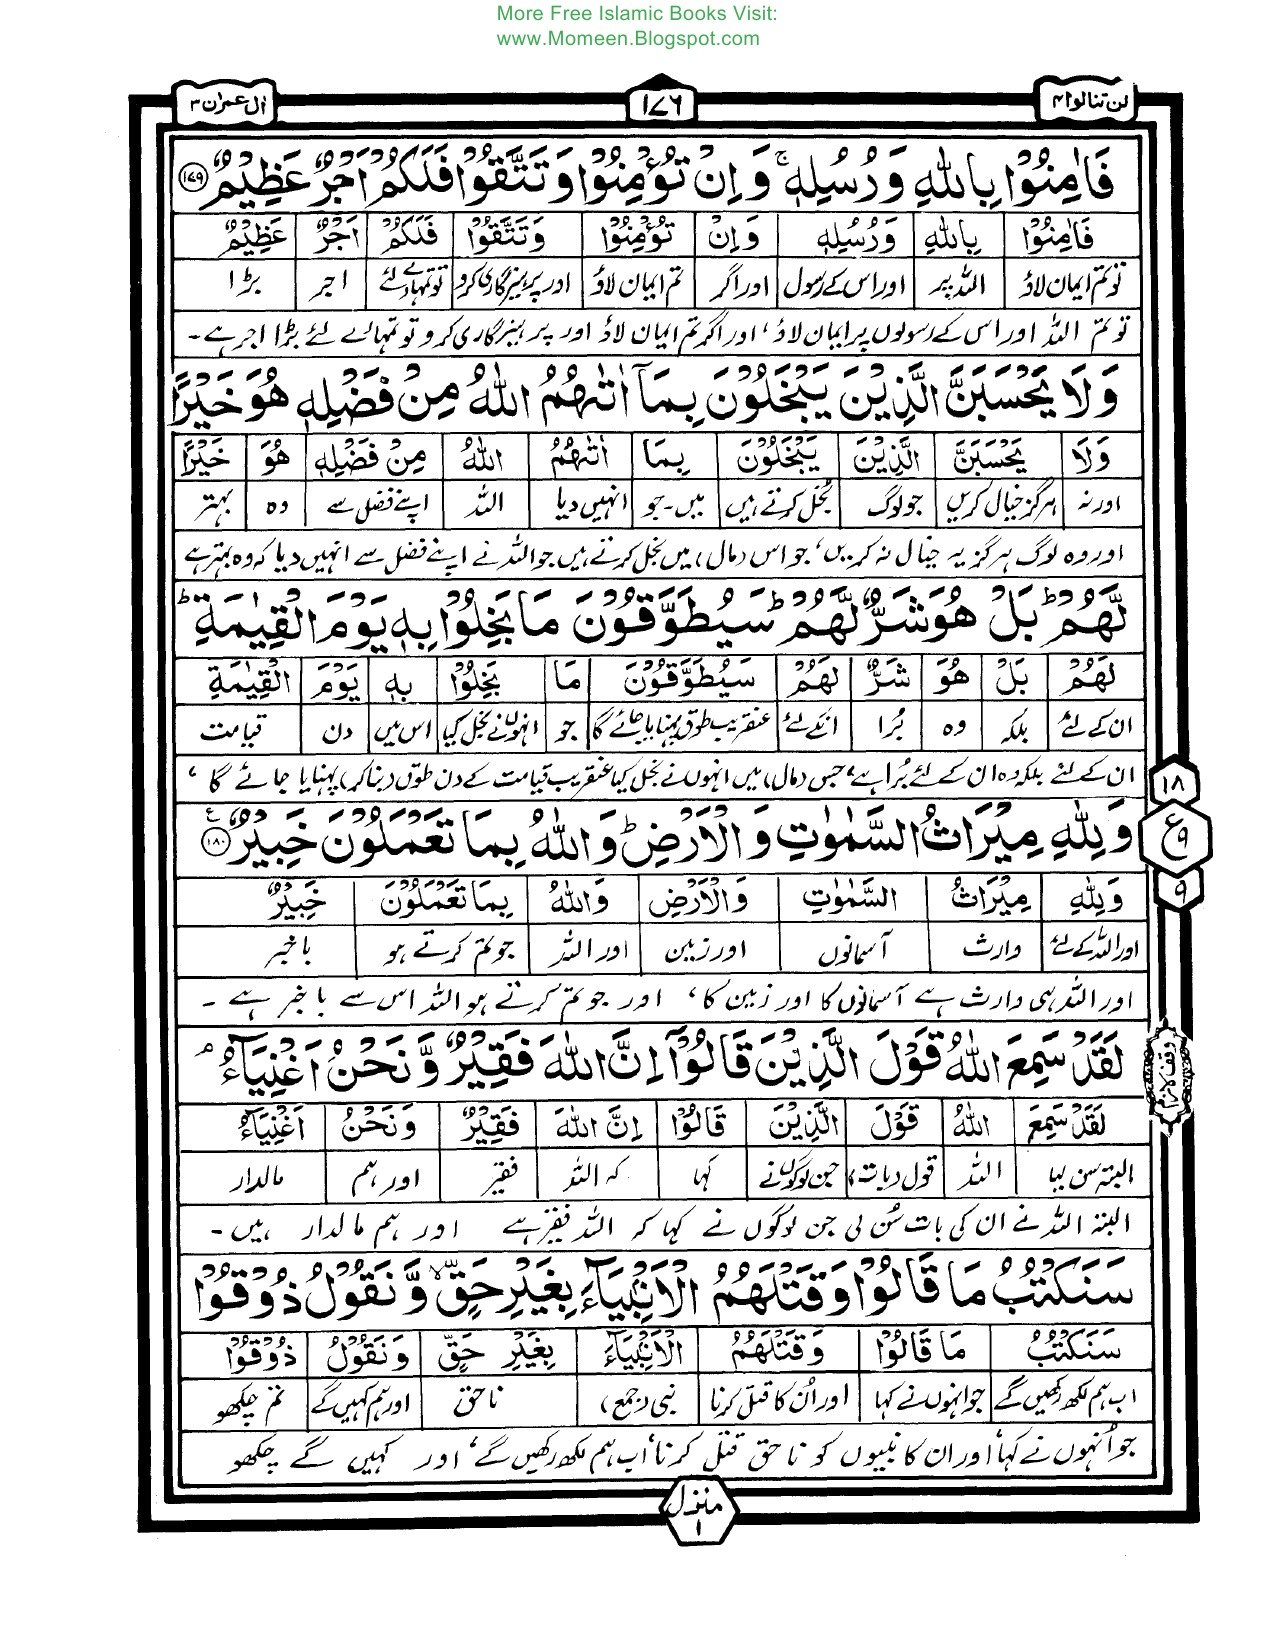 More Free Islamic Books Visit:
www.Momeen.Blogspot.com
لن تنالوا ۴
۱۷۶
اٰل عمرٰن ۳
فَاٰمِنُوْا بِاللّٰهِ وَرُسُلِهٖ ۚ وَاِنْ تُؤْمِنُوْا وَتَتَّقُوْا فَلَكُمْ اَجْرٌ عَظِيْمٌ ۱۷۹
فَاٰمِنُوْا بِاللّٰهِ وَرُسُلِهٖ وَاِنْ تُؤْمِنُوْا وَتَتَّقُوْا فَلَكُمْ اَجْرٌ عَظِيْمٌ
تو تم ایمان لاؤ اللہ پر اور اس کے رسول اور اگر تم ایمان لاؤ اور پرہیزگاری کرو تو تمہارے لئے اجر بڑا
تو تم اللہ اور اس کے رسولوں پر ایمان لاؤ، اور اگر تم ایمان لاؤ اور پرہیزگاری کرو تو تمہارے لئے بڑا اجر ہے۔
وَلَا يَحْسَبَنَّ الَّذِيْنَ يَبْخَلُوْنَ بِمَآ اٰتٰىهُمُ اللّٰهُ مِنْ فَضْلِهٖ هُوَ خَيْرًا
وَلَا يَحْسَبَنَّ الَّذِيْنَ يَبْخَلُوْنَ بِمَا اٰتٰىهُمُ اللّٰهُ مِنْ فَضْلِهٖ هُوَ خَيْرًا
اور نہ ہرگز خیال کریں جو لوگ بخل کرتے ہیں میں۔جو انہیں دیا اللہ اپنے فضل سے وہ بہتر
اور وہ لوگ ہرگز یہ خیال نہ کریں، جو اس (مال) میں بخل کرتے ہیں جو اللہ نے اپنے فضل سے انہیں دیا کہ وہ بہتر ہے
لَّهُمْ ؕ بَلْ هُوَ شَرٌّ لَّهُمْ ؕ سَيُطَوَّقُوْنَ مَا بَخِلُوْا بِهٖ يَوْمَ الْقِيٰمَةِ ؕ
لَهُمْ بَلْ هُوَ شَرٌّ لَهُمْ سَيُطَوَّقُوْنَ مَا بَخِلُوْا بِهٖ يَوْمَ الْقِيٰمَةِ
ان کے لئے بلکہ وہ بُرا انکے لئے عنقریب طوق پہنایا جائے گا جو انہوں نے بخل کیا اس میں دن قیامت
ان کے لئے بلکہ وہ ان کے لئے بُرا ہے، جس (مال) میں انہوں نے بخل کیا عنقریب قیامت کے دن طوق (بنا کر) پہنایا جائے گا،
وَلِلّٰهِ مِيْرَاثُ السَّمٰوٰتِ وَالْاَرْضِ ؕ وَاللّٰهُ بِمَا تَعْمَلُوْنَ خَبِيْرٌ ۱۸۰ ع
۱۸
ع ۹
۹
وَلِلّٰهِ مِيْرَاثُ السَّمٰوٰتِ وَالْاَرْضِ وَاللّٰهُ بِمَا تَعْمَلُوْنَ خَبِيْرٌ
اور اللہ کے لئے وارث آسمانوں اور زمین اور اللہ جو تم کرتے ہو باخبر
اور اللہ ہی وارث ہے آسمانوں کا اور زمین کا، اور جو تم کرتے ہو اللہ اس سے باخبر ہے۔
لَقَدْ سَمِعَ اللّٰهُ قَوْلَ الَّذِيْنَ قَالُوْٓا اِنَّ اللّٰهَ فَقِيْرٌ وَّنَحْنُ اَغْنِيَآءُ ۘ
وقف لازم
لَقَدْ سَمِعَ اللّٰهُ قَوْلَ الَّذِيْنَ قَالُوْا اِنَّ اللّٰهَ فَقِيْرٌ وَنَحْنُ اَغْنِيَآءُ
البتہ سن لیا اللہ قول (بات) جن لوگوں نے کہا کہ اللہ فقیر اور ہم مالدار
البتہ اللہ نے ان کی بات سُن لی جن لوگوں نے کہا کہ اللہ فقیر ہے اور ہم مالدار ہیں۔
سَنَكْتُبُ مَا قَالُوْا وَقَتْلَهُمُ الْاَنْۢبِيَآءَ بِغَيْرِ حَقٍّ ۙ وَّنَقُوْلُ ذُوْقُوْا
سَنَكْتُبُ مَا قَالُوْا وَقَتْلَهُمُ الْاَنْۢبِيَآءَ بِغَيْرِ حَقٍّ وَنَقُوْلُ ذُوْقُوْا
اب ہم لکھ رکھیں گے جو انہوں نے کہا اور اُن کا قتل کرنا نبی (جمع) ناحق اور ہم کہیں گے تم چکھو
جو اُنہوں نے کہا، اور ان کا نبیوں کو ناحق قتل کرنا، اب ہم لکھ رکھیں گے، اور کہیں گے چکھو
منزل ۱